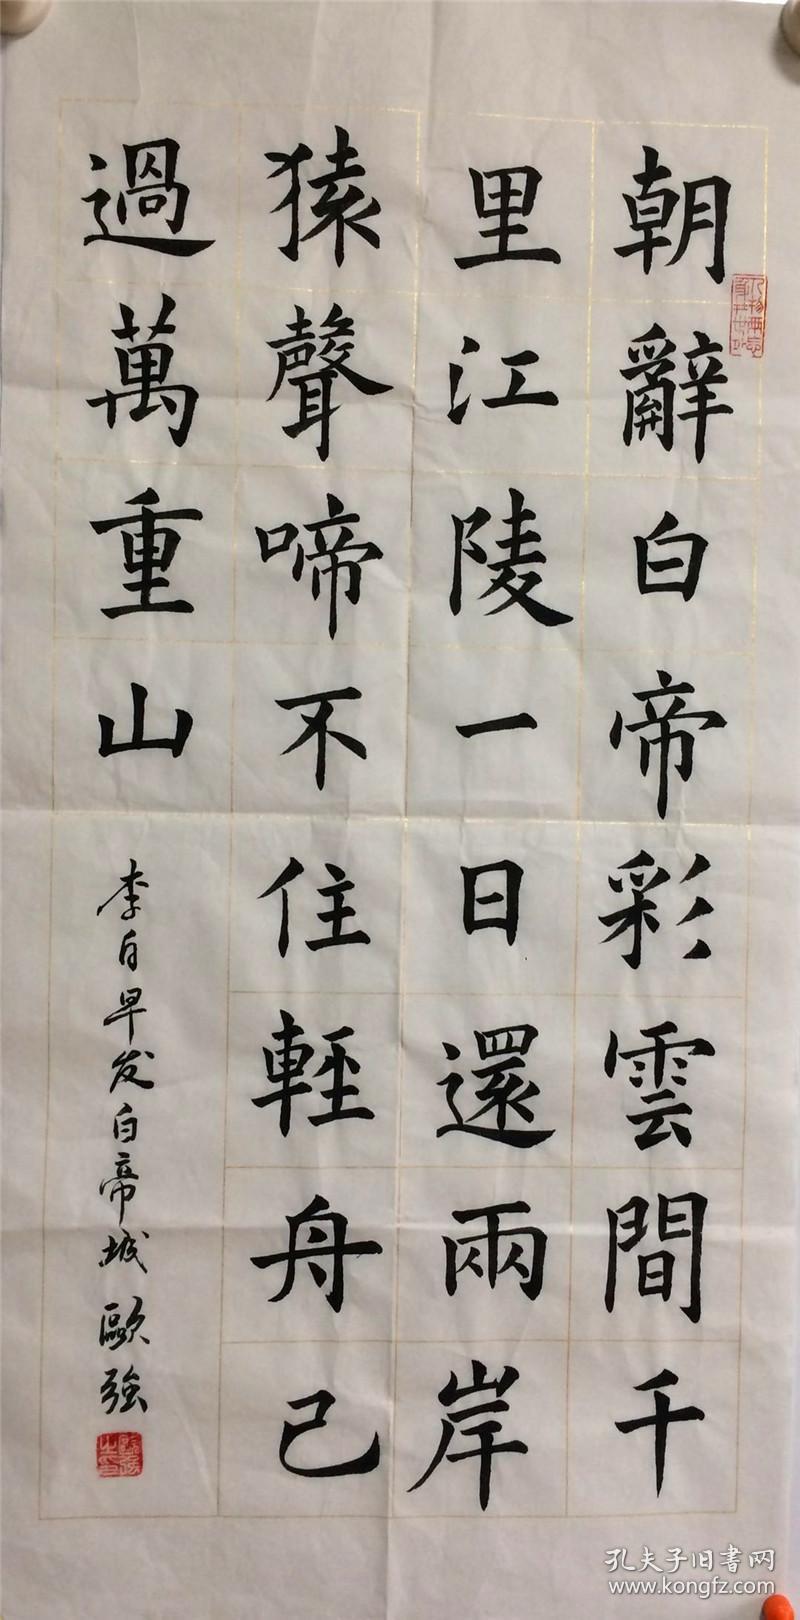 朝辭白帝彩雲間千
里江陵一日還兩岸
猿聲啼不住輕舟己
過萬重山
李白早发白帝城 歐强
孔夫子旧書网
www.kongfz.com